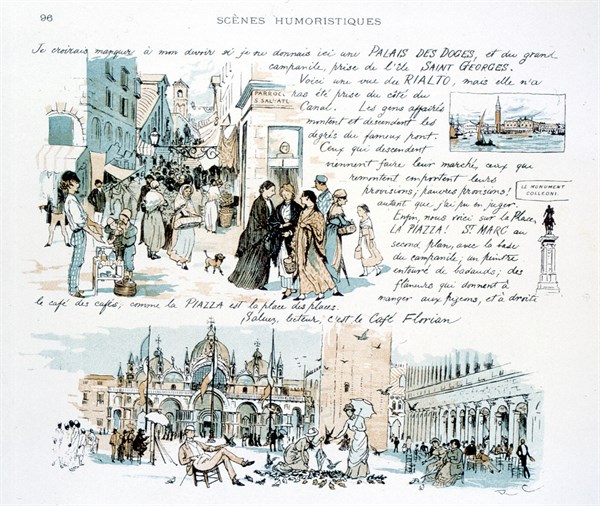 96
SCÈNES HUMORISTIQUES
Je croirais manquer à mon devoir si je ne donnais ici une PALAIS DES DOGES, et du grand
campanile, prise de l'île SAINT GEORGES.
Voici une vue du RIALTO, mais elle n'a
pas été prise du côté du
Canal. Les gens affairés
montent et descendent les
degrés du fameux pont.
Ceux qui descendent
viennent faire leur marché, ceux qui
remontent emportent leurs
provisions; pauvres provisions!
autant que j'ai pu en juger.
Enfin, nous voici sur la Place,
LA PIAZZA! St MARC au
second plan, avec la base
du campanile; un peintre
entouré de badauds; des
flâneurs qui donnent à
manger aux pigeons, et à droite
le café des cafés, comme la PIAZZA est la place des places.
Saluez, lecteur, c'est le Café Florian
PARRUC.
S. SAL. ATL.
LE MONUMENT
COLLEONI.